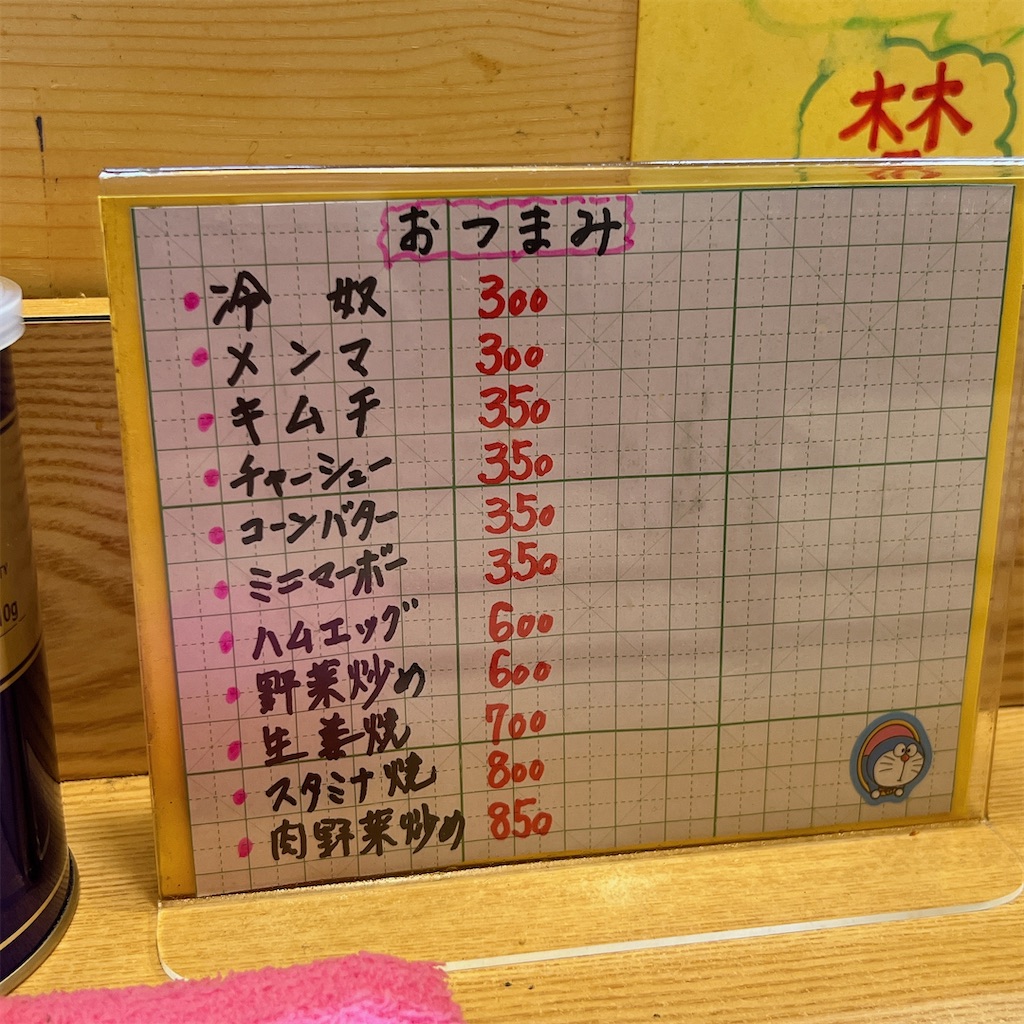 おつまみ
・冷 奴 300
・メンマ 300
・キムチ 350
・チャーシュー 350
・コーンバター 350
・ミニマーボー 350
・ハムエッグ 600
・野菜炒め 600
・生姜焼 700
・スタミナ焼 800
・肉野菜炒め 850
禁
TY
10g